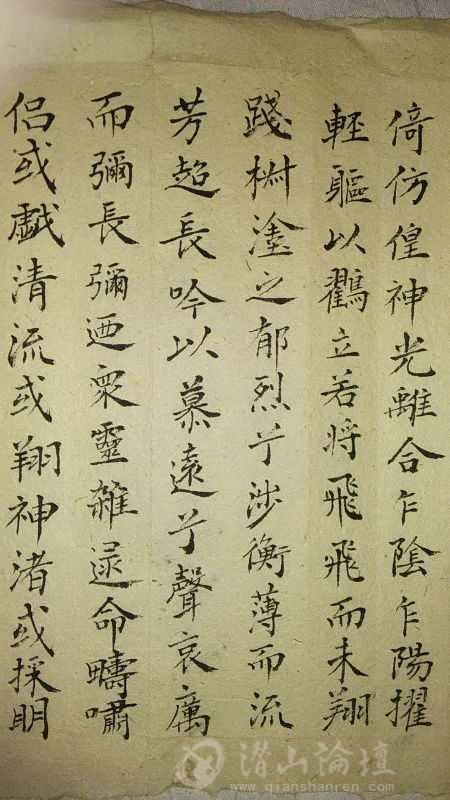 倚仿偟神光離合乍陰乍陽擢
輕軀以鸖立若将飛飛而未翔
踐椒塗之郁烈兮涉衡薄而流
芳超長吟以慕遠兮聲哀厲
而彌長彌迺衆靈雜遝命疇嘯
侣或戯清流或翔神渚或採明
潜山論壇
www.qianshanren.com